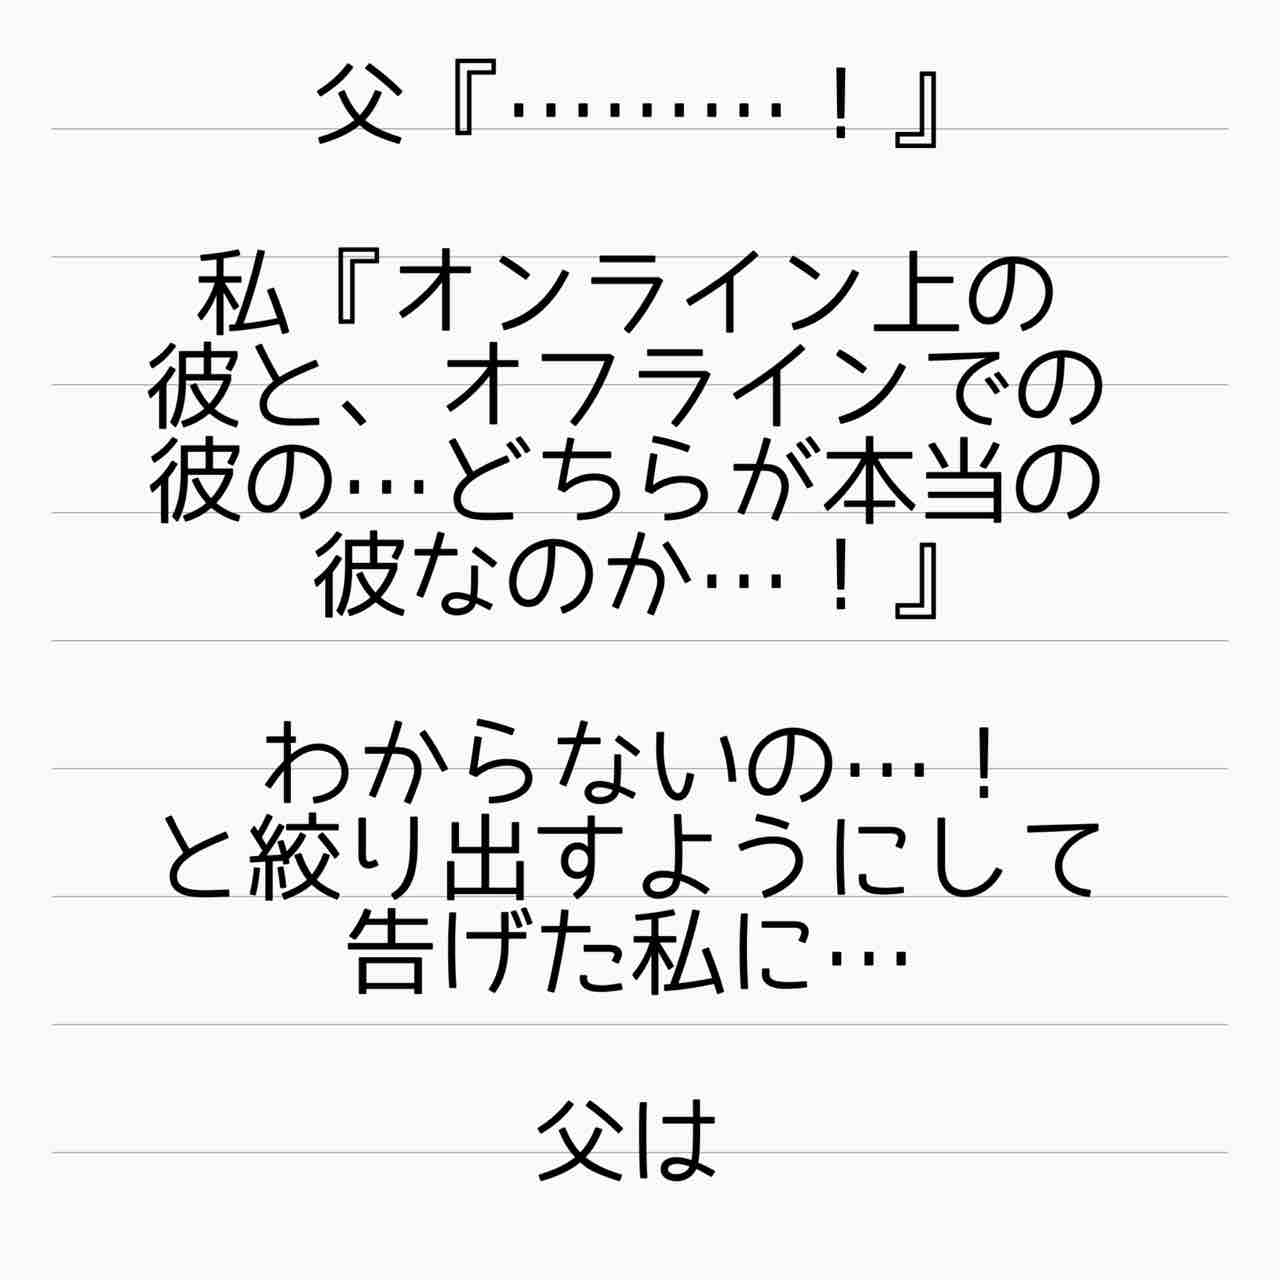 父『………！』
私『オンライン上の
彼と、オフラインでの
彼の…どちらが本当の
彼なのか…！』
わからないの…！
と絞り出すようにして
告げた私に…
父は